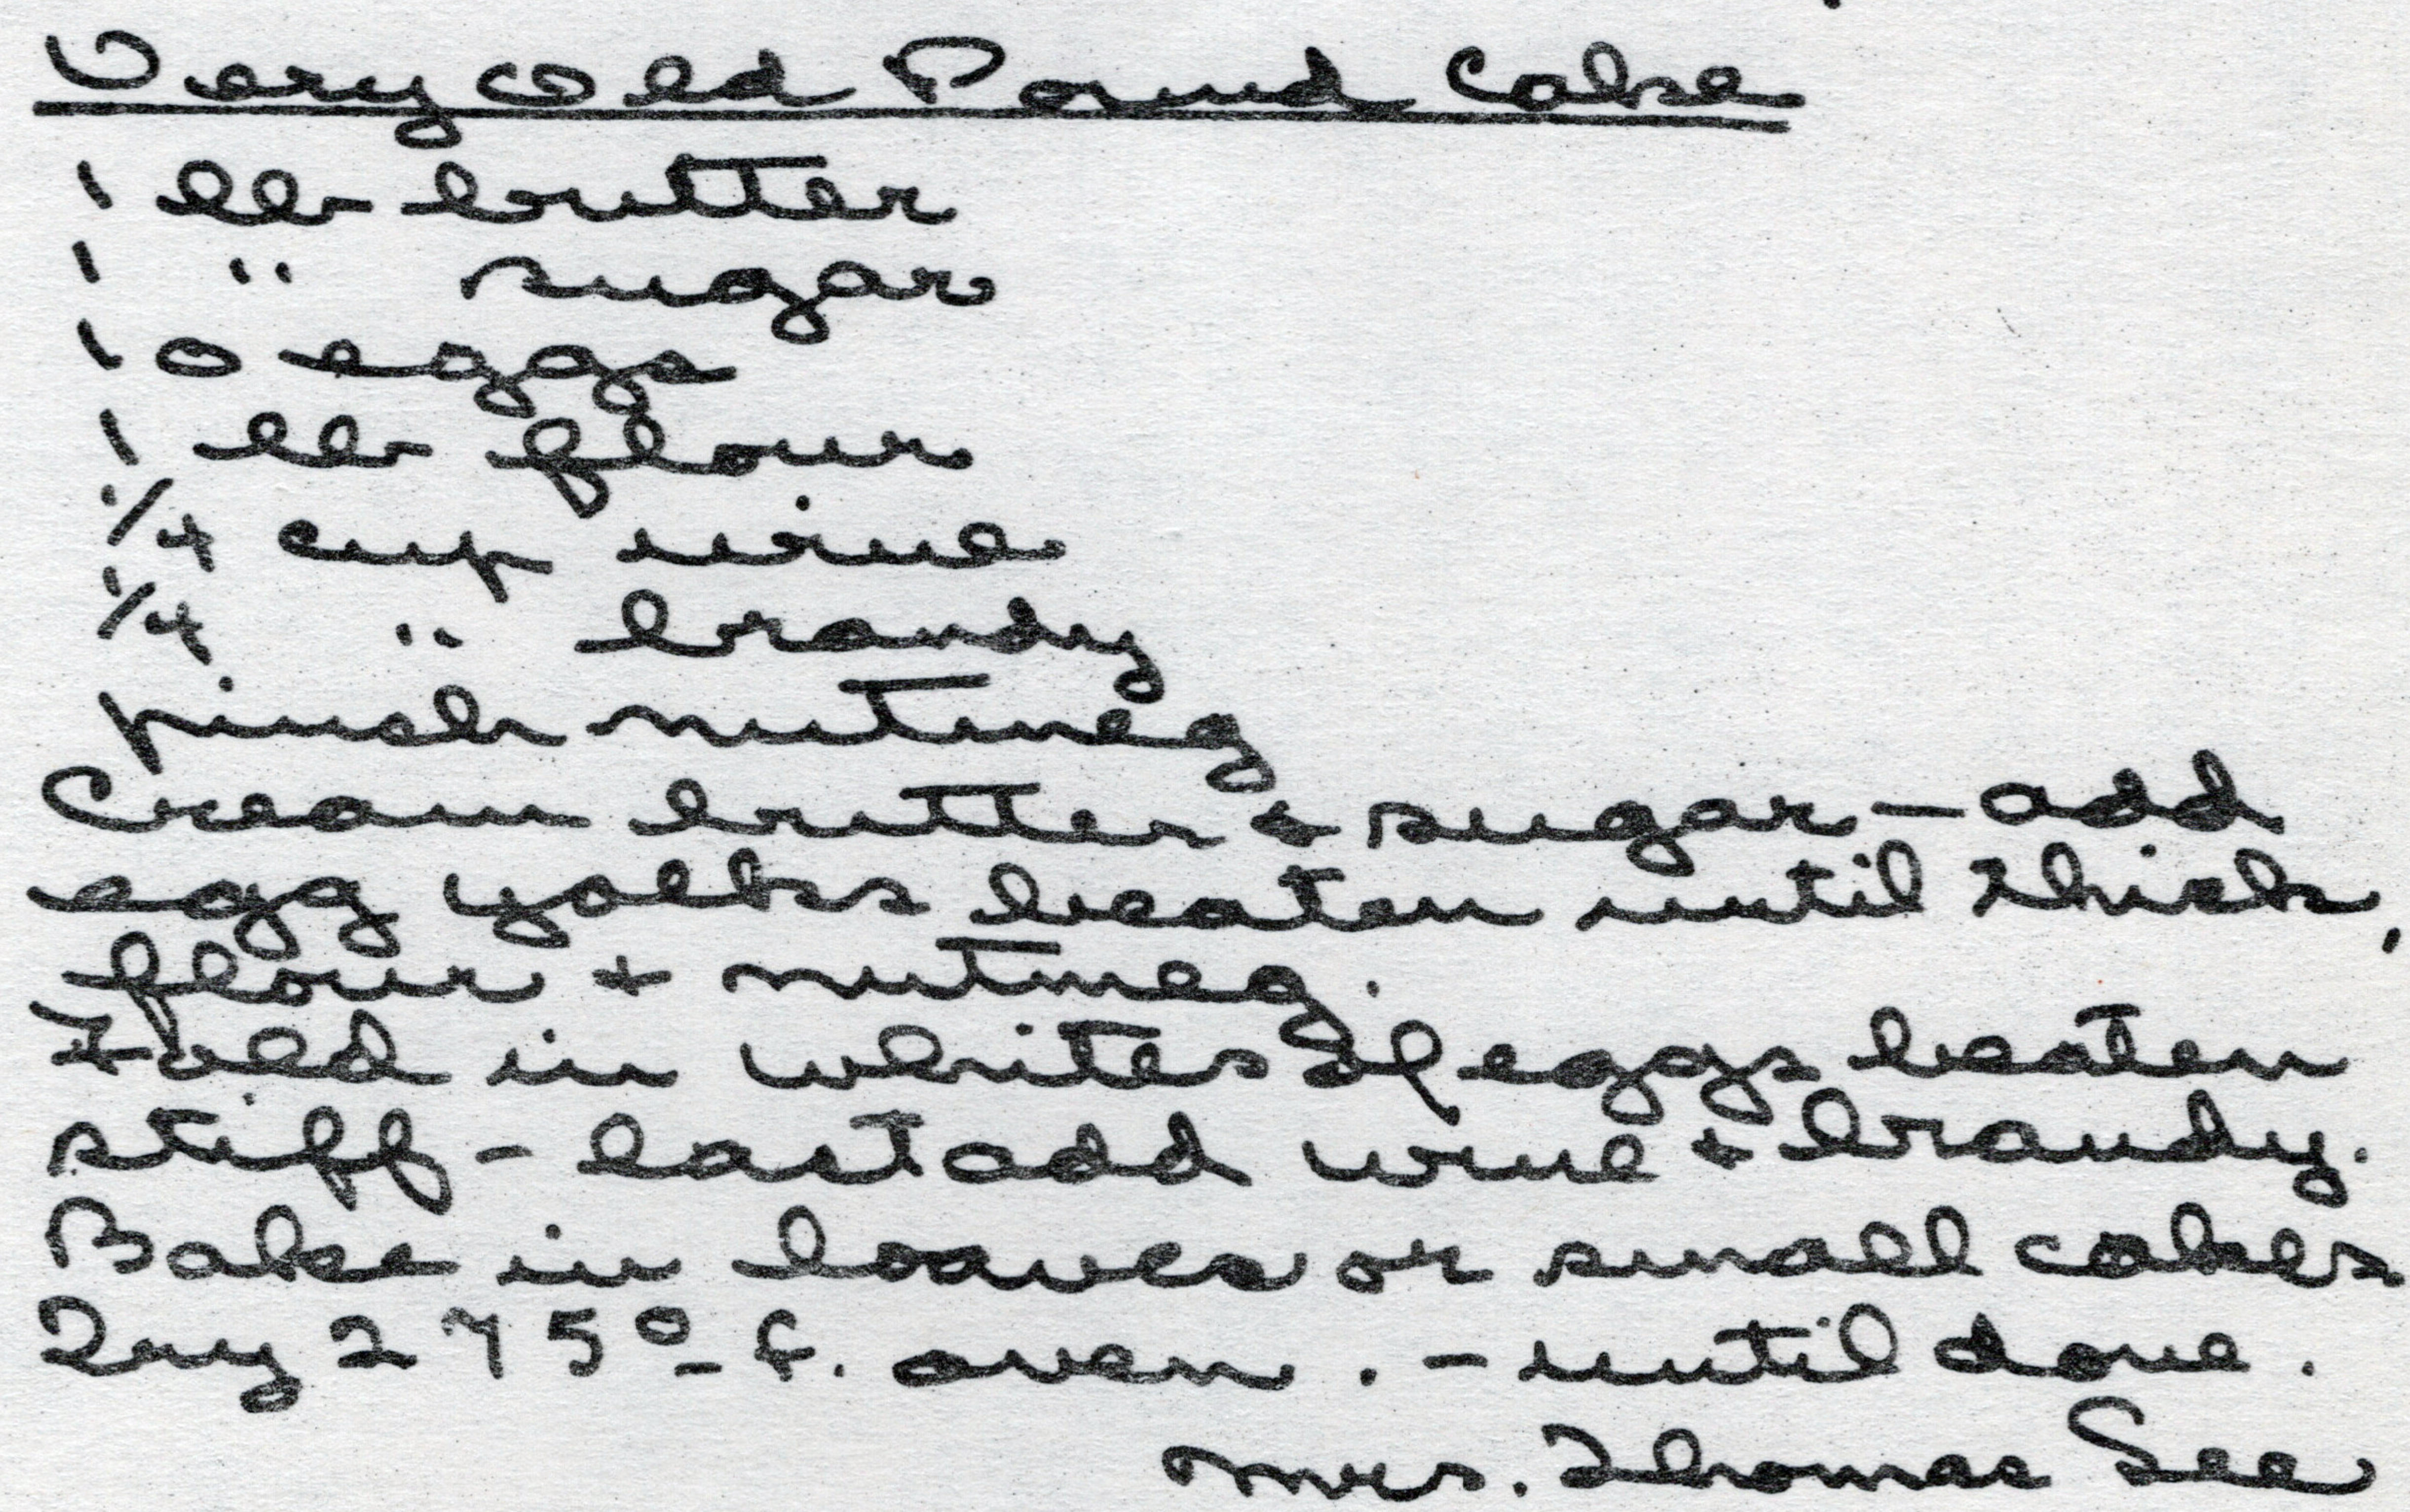 Very Old Pound Cake
1 lb butter
1 " sugar
10 eggs
1 lb flour
1/4 cup wine
1/4 " brandy
pinch nutmeg
Cream butter & sugar – add
egg yolks beaten until thick,
flour + nutmeg.
Fold in whites of eggs beaten
stiff – last add wine + brandy.
Bake in loaves or small cakes
Try 275° f. oven. – until done.
Mrs. Thomas See